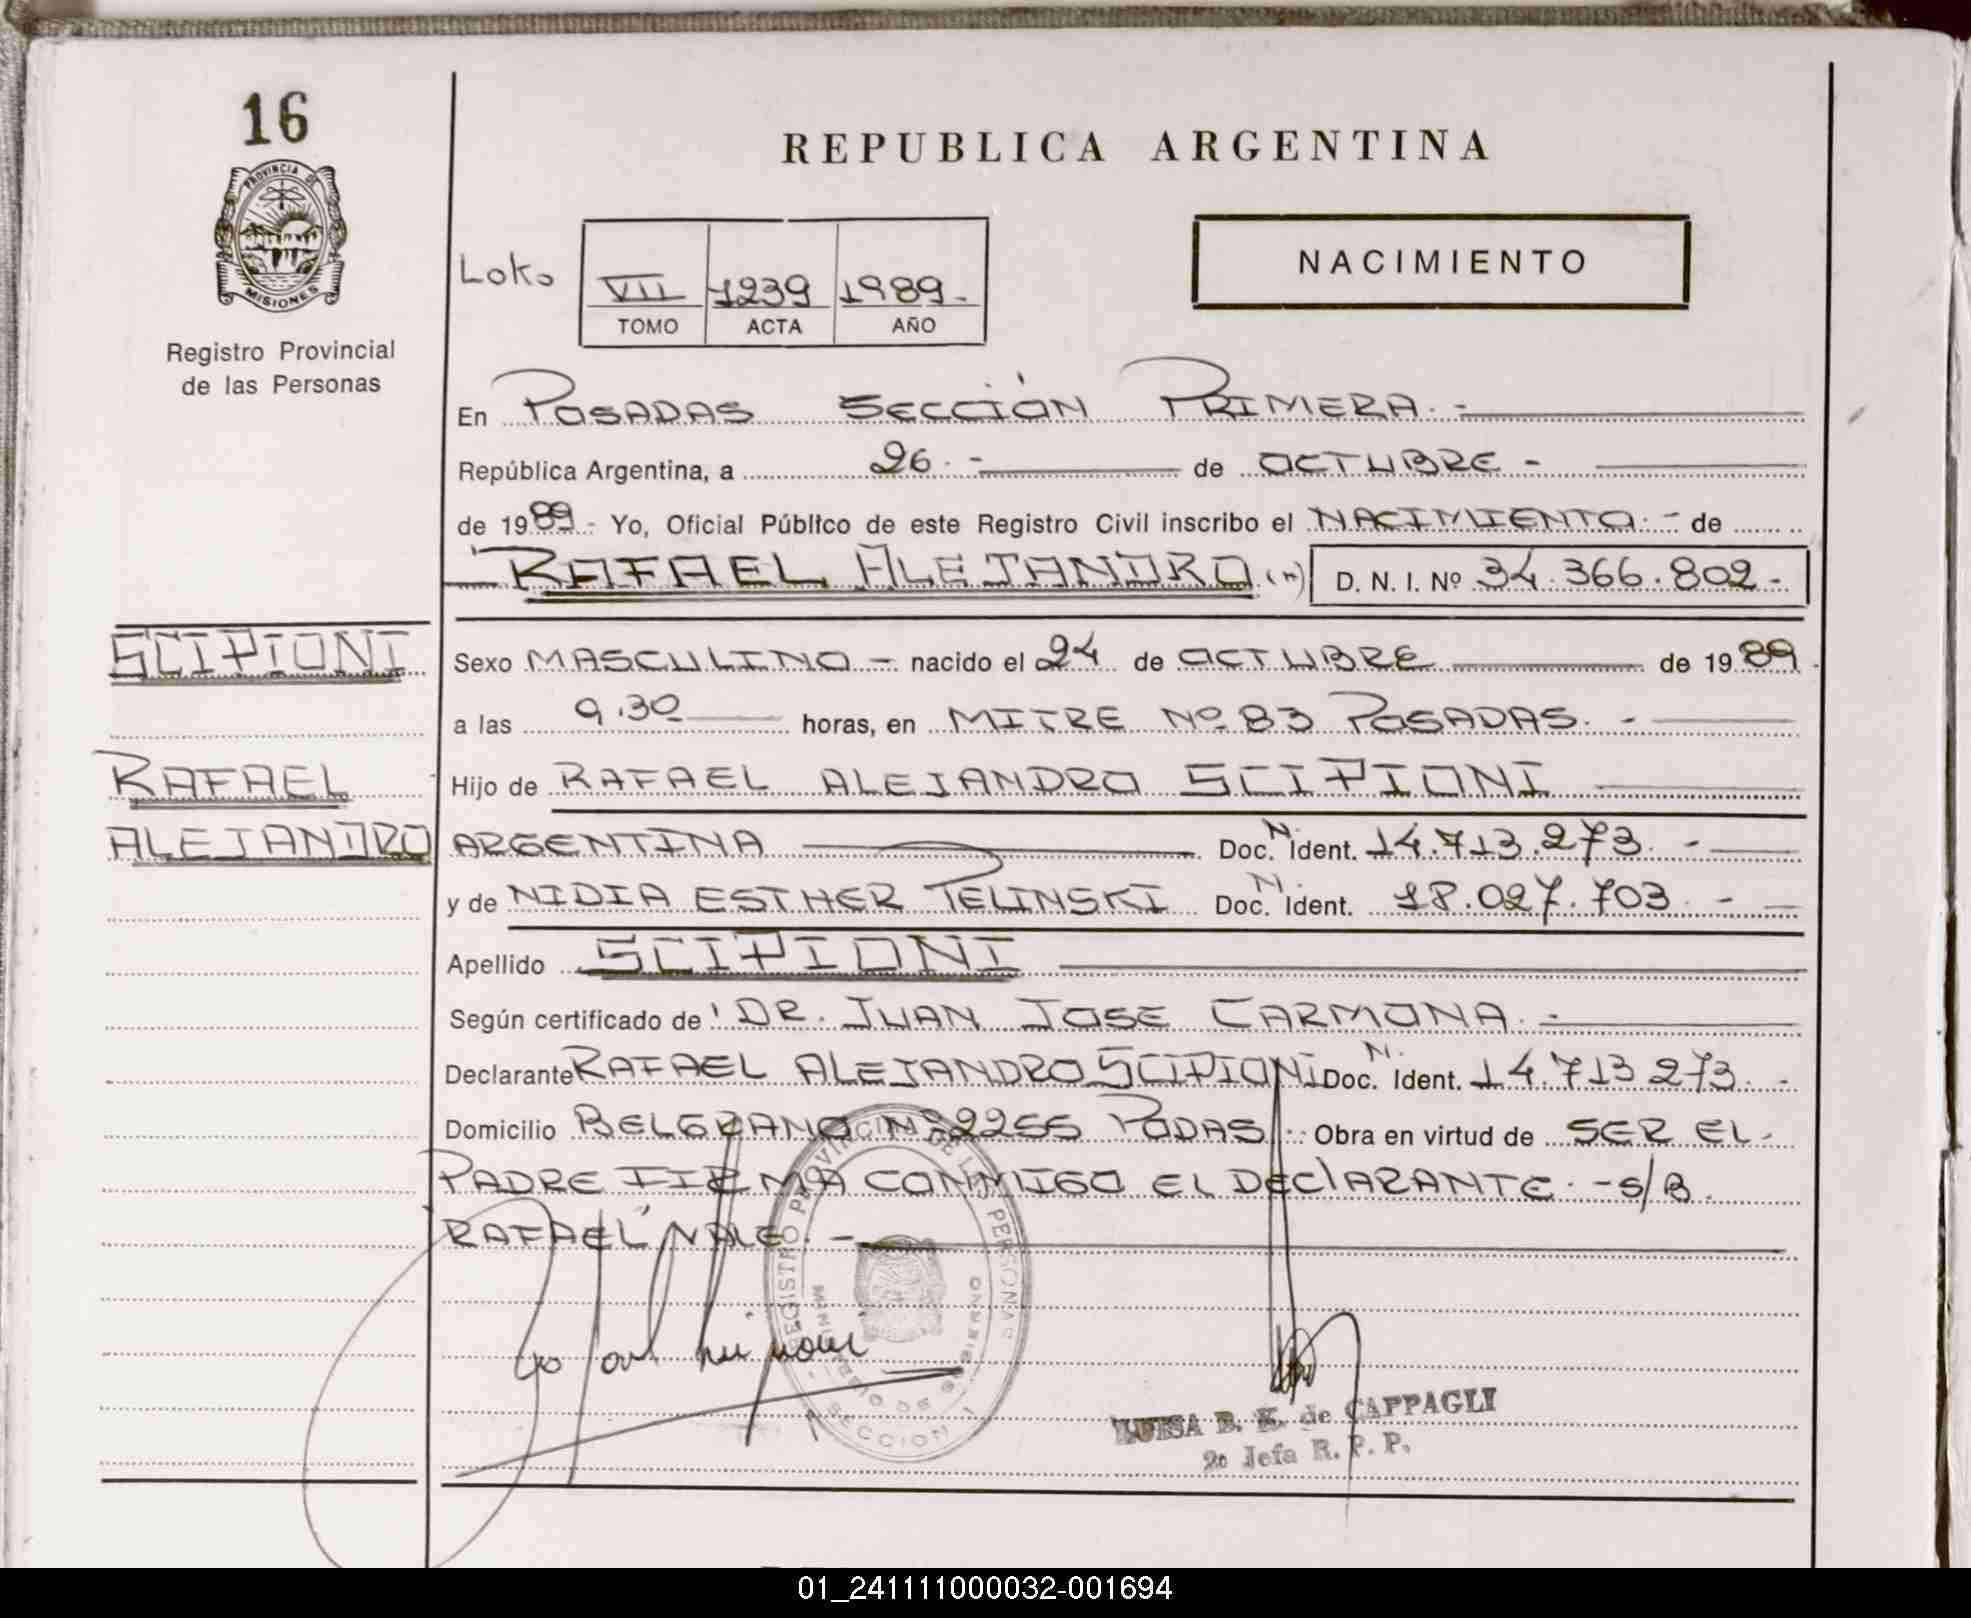 16
PROVINCIA DE
MISIONES
Registro Provincial
de las Personas
REPUBLICA ARGENTINA
NACIMIENTO
VII 1239 1989.-
TOMO ACTA AÑO
En POSADAS SECCIÓN PRIMERA.-
República Argentina, a 26.- de OCTUBRE -
de 1989.- Yo, Oficial Público de este Registro Civil inscribo el NACIMIENTO.- de
RAFAEL ALEJANDRO D. N. I. Nº 34.366.802.-
SCIPIONI
Sexo MASCULINO - nacido el 24 de OCTUBRE de 1989.
a las 9.30 horas, en MITRE Nº 83 POSADAS. -
RAFAEL
Hijo de RAFAEL ALEJANDRO SCIPIONI
ALEJANDRO
ARGENTINA Doc. N. Ident. 14.713.273. -
y de NIDIA ESTHER PELINSKI Doc. N. Ident. 18.027.703. -
Apellido SCIPIONI
Según certificado de DR. JUAN JOSE CARMONA. -
Declarante RAFAEL ALEJANDRO SCIPIONI Doc. N. Ident. 14.713 273. -
Domicilio BELGRANO Nº 2255 PODAS. Obra en virtud de SER EL-
PADRE FIRMA CONMIGO EL DECLARANTE. -S/B.
"RAFAEL" VALE. -
REGISTRO PROVINCIAL DE LAS PERSONAS
MINISTERIO DE GOBIERNO
- SECCION 1
LUISA B. K. de CAPPAGLI
2º Jefa R. P. P.
01_241111000032-001694